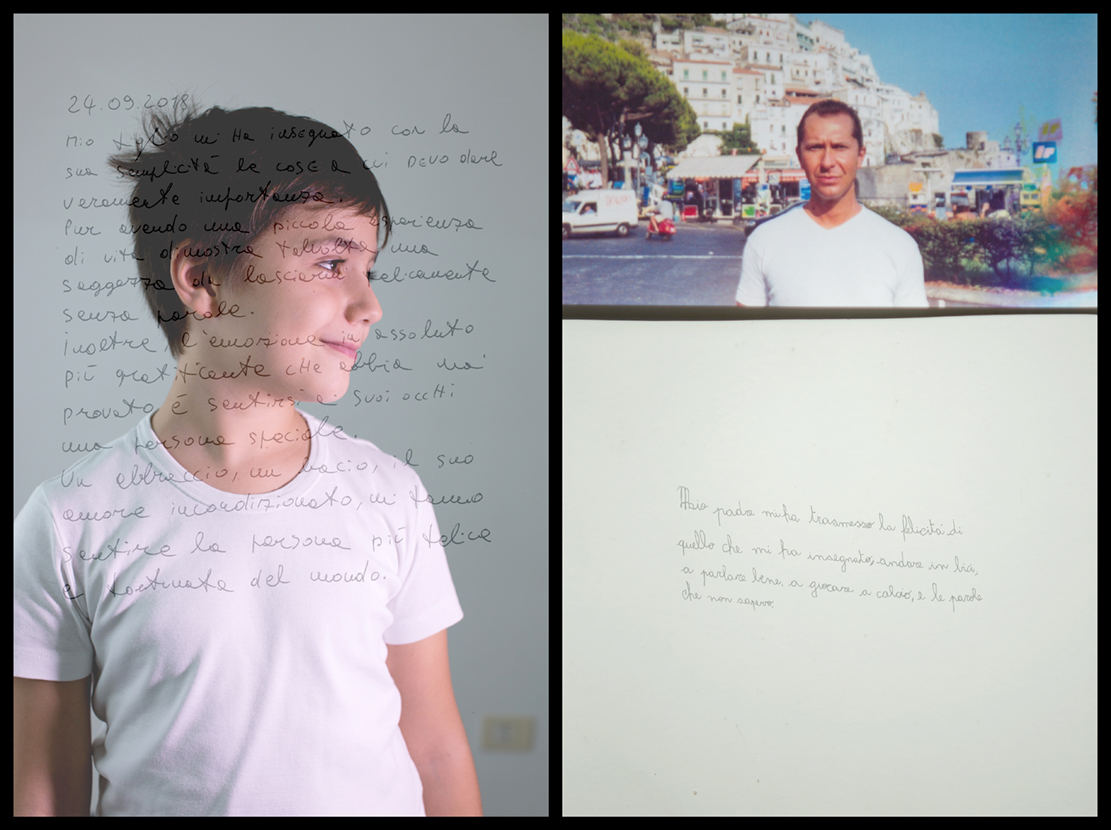 24.09.2018
Mio figlio mi Ha insegnato con la
sua semplicità le cose a cui devo dare
veramente importanza.
Pur avendo una piccola esperienza
di vita dimostra talvolta una
saggezza da lasciarmi
senza parole.
inoltre, l'emozione in assoluto
più gratificante cHe abbia mai
provato è sentirsi ai suoi occHi
una persona speciale.
Un abbraccio, un bacio, il suo
amore incondizionato, mi fanno
sentire la persona più felice
e fortunata del mondo.
Mio padre mi ha trasmesso la felicità di
quello che mi ha insegnato, andare in bici,
a parlare bene, a giocare a calcio, e le parole
che non sapevo.